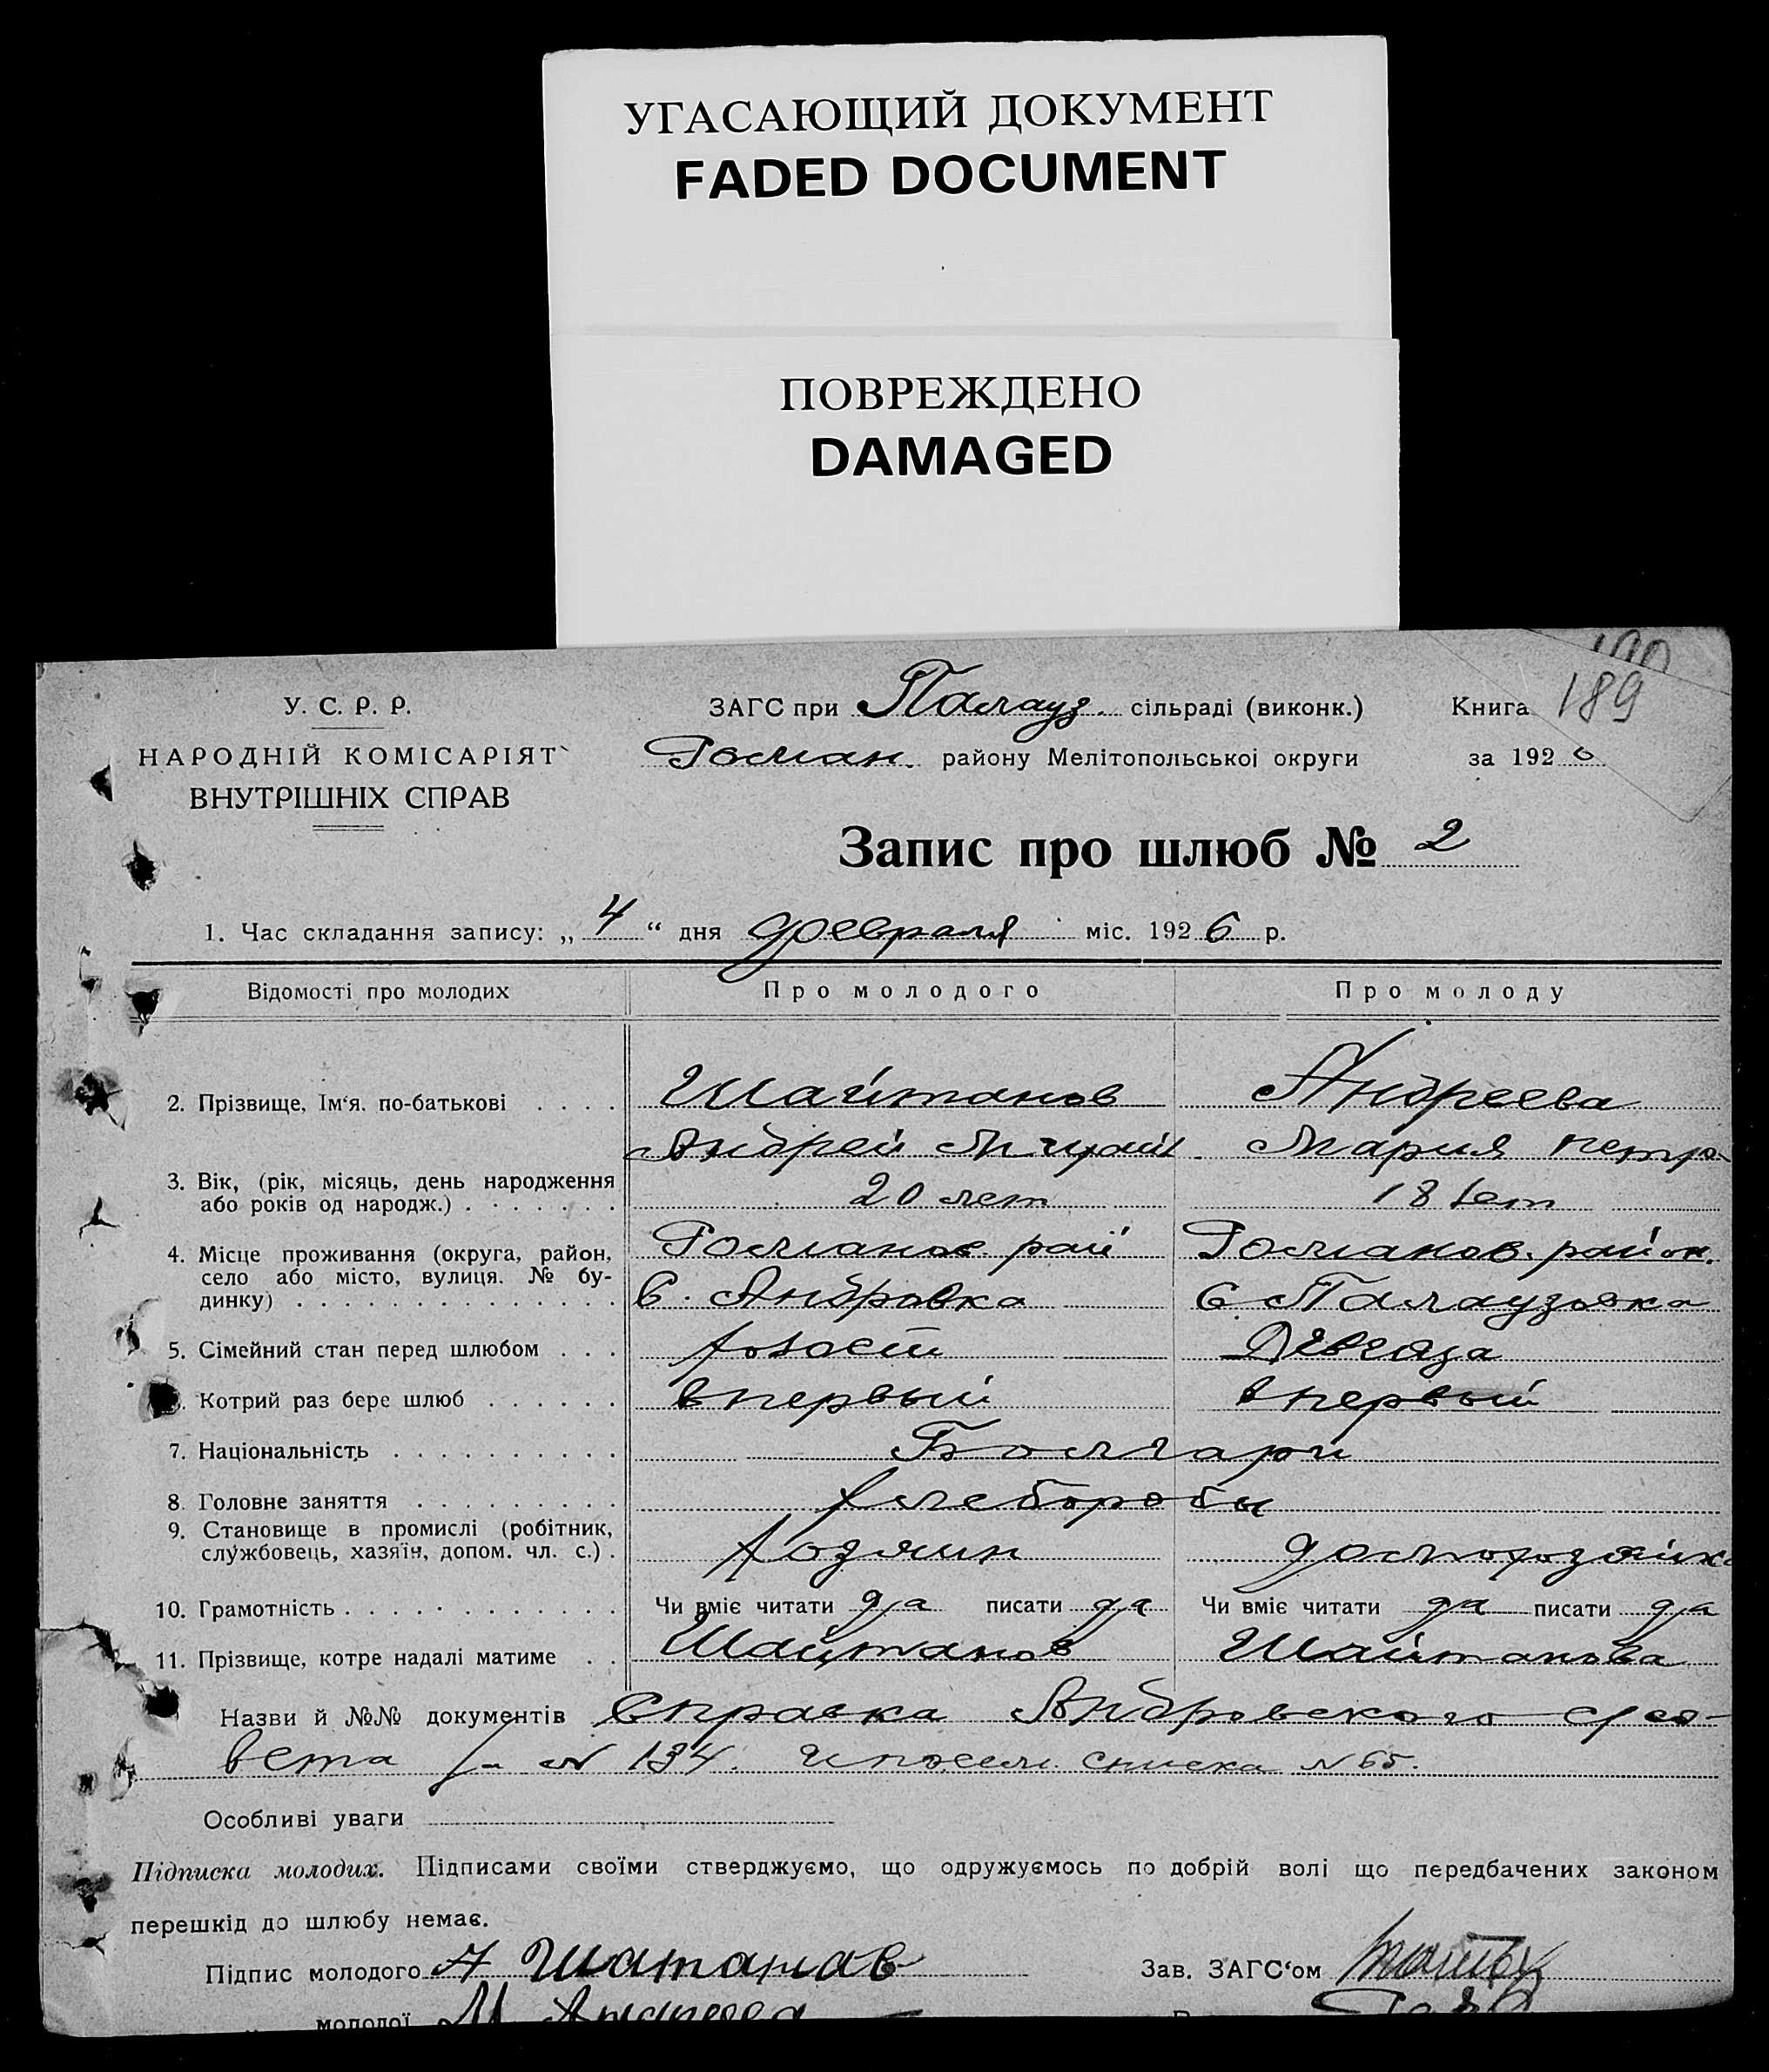 УГАСАЮЩИЙ ДОКУМЕНТ
FADED DOCUMENT
ПОВРЕЖДЕНО
DAMAGED
190
189
У. С. Р. Р.
НАРОДНІЙ КОМІСАРІЯТ
ВНУТРІШНІХ СПРАВ
ЗАГС при Палауз. сільраді (виконк.)
Роман. району Мелітопольської округи
Книга
за 1926
Запис про шлюб № 2
1. Час складання запису: „4“ дня февраля міс. 1926 р.
Відомості про молодих Про молодого Про молоду
2. Прізвище, Ім‘я, по-батькові . . . . Шайтанов Андреева
Андрей Михайл. Мария Петро
3. Вік, (рік, місяць, день народження
або років од народж.) . . . . . . . 20 лет 18 лет
4. Місце проживання (округа, район, Романов. рай Романов. район.
село або місто, вулиця. № бу- С. Андровка С Палаузовка
динку) . . . . . . . . . . . . . .
5. Сімейний стан перед шлюбом . . . холост Девчаза
. Котрий раз бере шлюб . . . . . . впервый впервый
7. Національність . . . . . . . . . . Болгари
8. Головне заняття . . . . . . . . . хлеборобы
9. Становище в промислі (робітник,
службовець, хазяїн, допом. чл. с.) . хозяин домохозяйка
10. Грамотність . . . . . . . . . . . . Чи вміє читати да писати да Чи вміє читати да писати да
11. Прізвище, котре надалі матиме . . Шайтанов Шайтанова
Назви й №№ документів Справка Андровского с/со-
вета за N 134. и посем. списка N 65.
Особливі уваги
Підписка молодих. Підписами своїми стверджуємо, що одружуємось по добрій волі що передбачених законом
перешкід до шлюбу немає.
Підпис молодого А Шатанав Зав. ЗАГС‘ом
молодої М Андреева